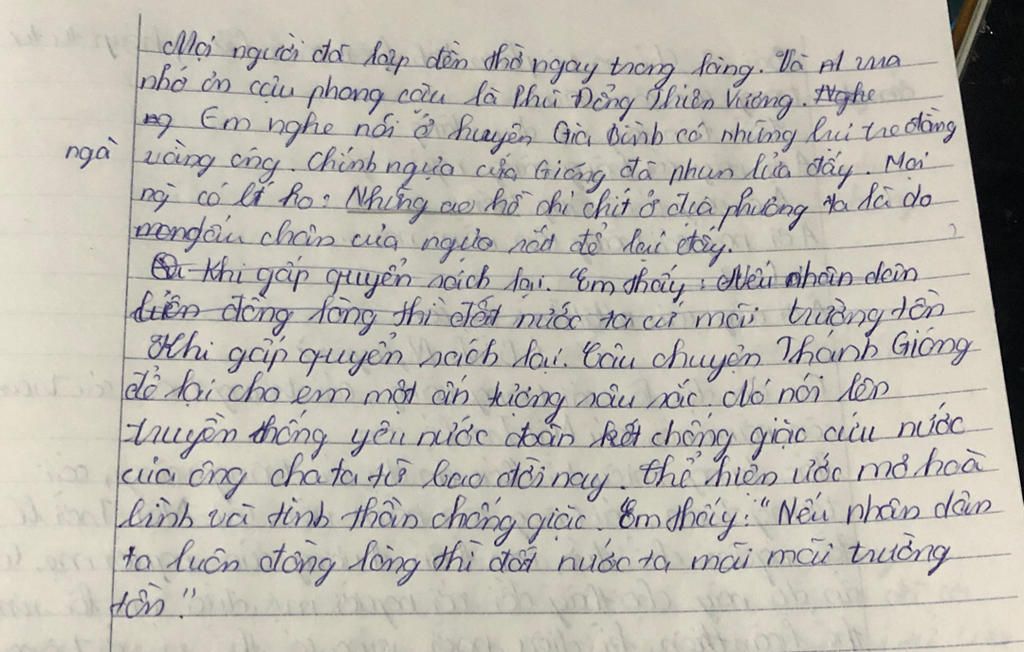 Mọi người đã lập đền thờ ngay trong làng. Và
nhớ ơn cậu phong cậu là Phù Đổng Thiên Vương. Nghe
Em nghe nói ở huyện Gia Bình có những lui tre đằng
ngà vàng óng. Chính ngựa của Gióng đã phun lửa đấy. Mọi
có lí ho: Những ao hồ chi chít ở địa phương ta là do
dấu chân của ngựa sắt để lại đấy.
Khi gấp quyển sách lại. Em thấy: Nếu nhân dân
đồng lòng thì đất nước ta cứ mãi trường tồn
Khi gấp quyển sách lại. Câu chuyện Thánh Gióng
để lại cho em một ấn tượng sâu sắc. Nó nói lên
truyền thống yêu nước đoàn kết chống giặc cứu nước
của ông cha ta từ bao đời nay. Thể hiện ước mơ hoà
bình và tinh thần chống giặc. Em thấy: "Nếu nhân dân
ta luôn đồng lòng thì đất nước ta mãi mãi trường
tồn."